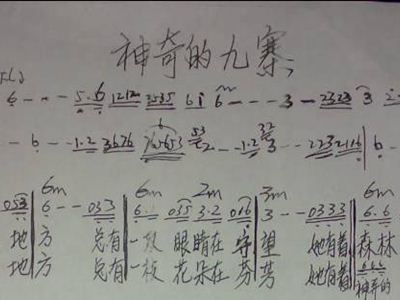 神奇的九寨
6 - - - 5·6 1212 3535 6i 6 - - - 3 - 2323 3
- 6 - - 1·2 3636 - 1·2 3 - - 2232116 | 6 -
053 | 6 - - 033 | 6·· 035 3·2 016 | 3 - - 0333 | 6·6
6m 6m 2m 3m 6m
地 方 总有 一双 眼睛在 守 望 她有着 森林
地 方 总有 一枝 花朵在 芬 芳 她有着 神奇的